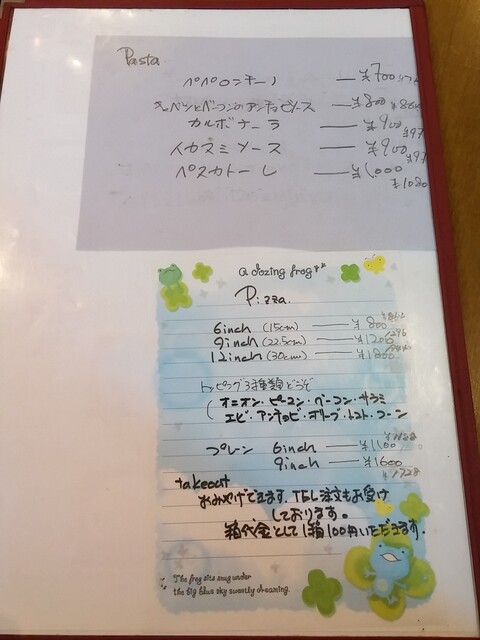 Pasta
ペペロンチーノ — ¥700
キャベツとベーコンのアンチョビソース — ¥800 ¥864
カルボナーラ — ¥900 ¥97
イカスミソース — ¥900 ¥97
ペスカトーレ — ¥1,000
¥1080
a dozing frog
Pizza.
¥864
6inch (15cm) — ¥800
1296
9inch (22.5cm) — ¥1200
12inch (30cm) — ¥1800
トッピング3種類どうぞ
(オニオン・ピーマン・ベーコン・サラミ
エビ・アンチョビ・オリーブ・トマト・コーン
¥1188
プレーン 6inch — ¥1100
9inch — ¥1600
¥1728
takeout
おみやげできます。TEL注文もお受け
しております。
箱代金として1箱100円いただきます。
The frog sits snug under
the big blue sky sweetly dreaming.